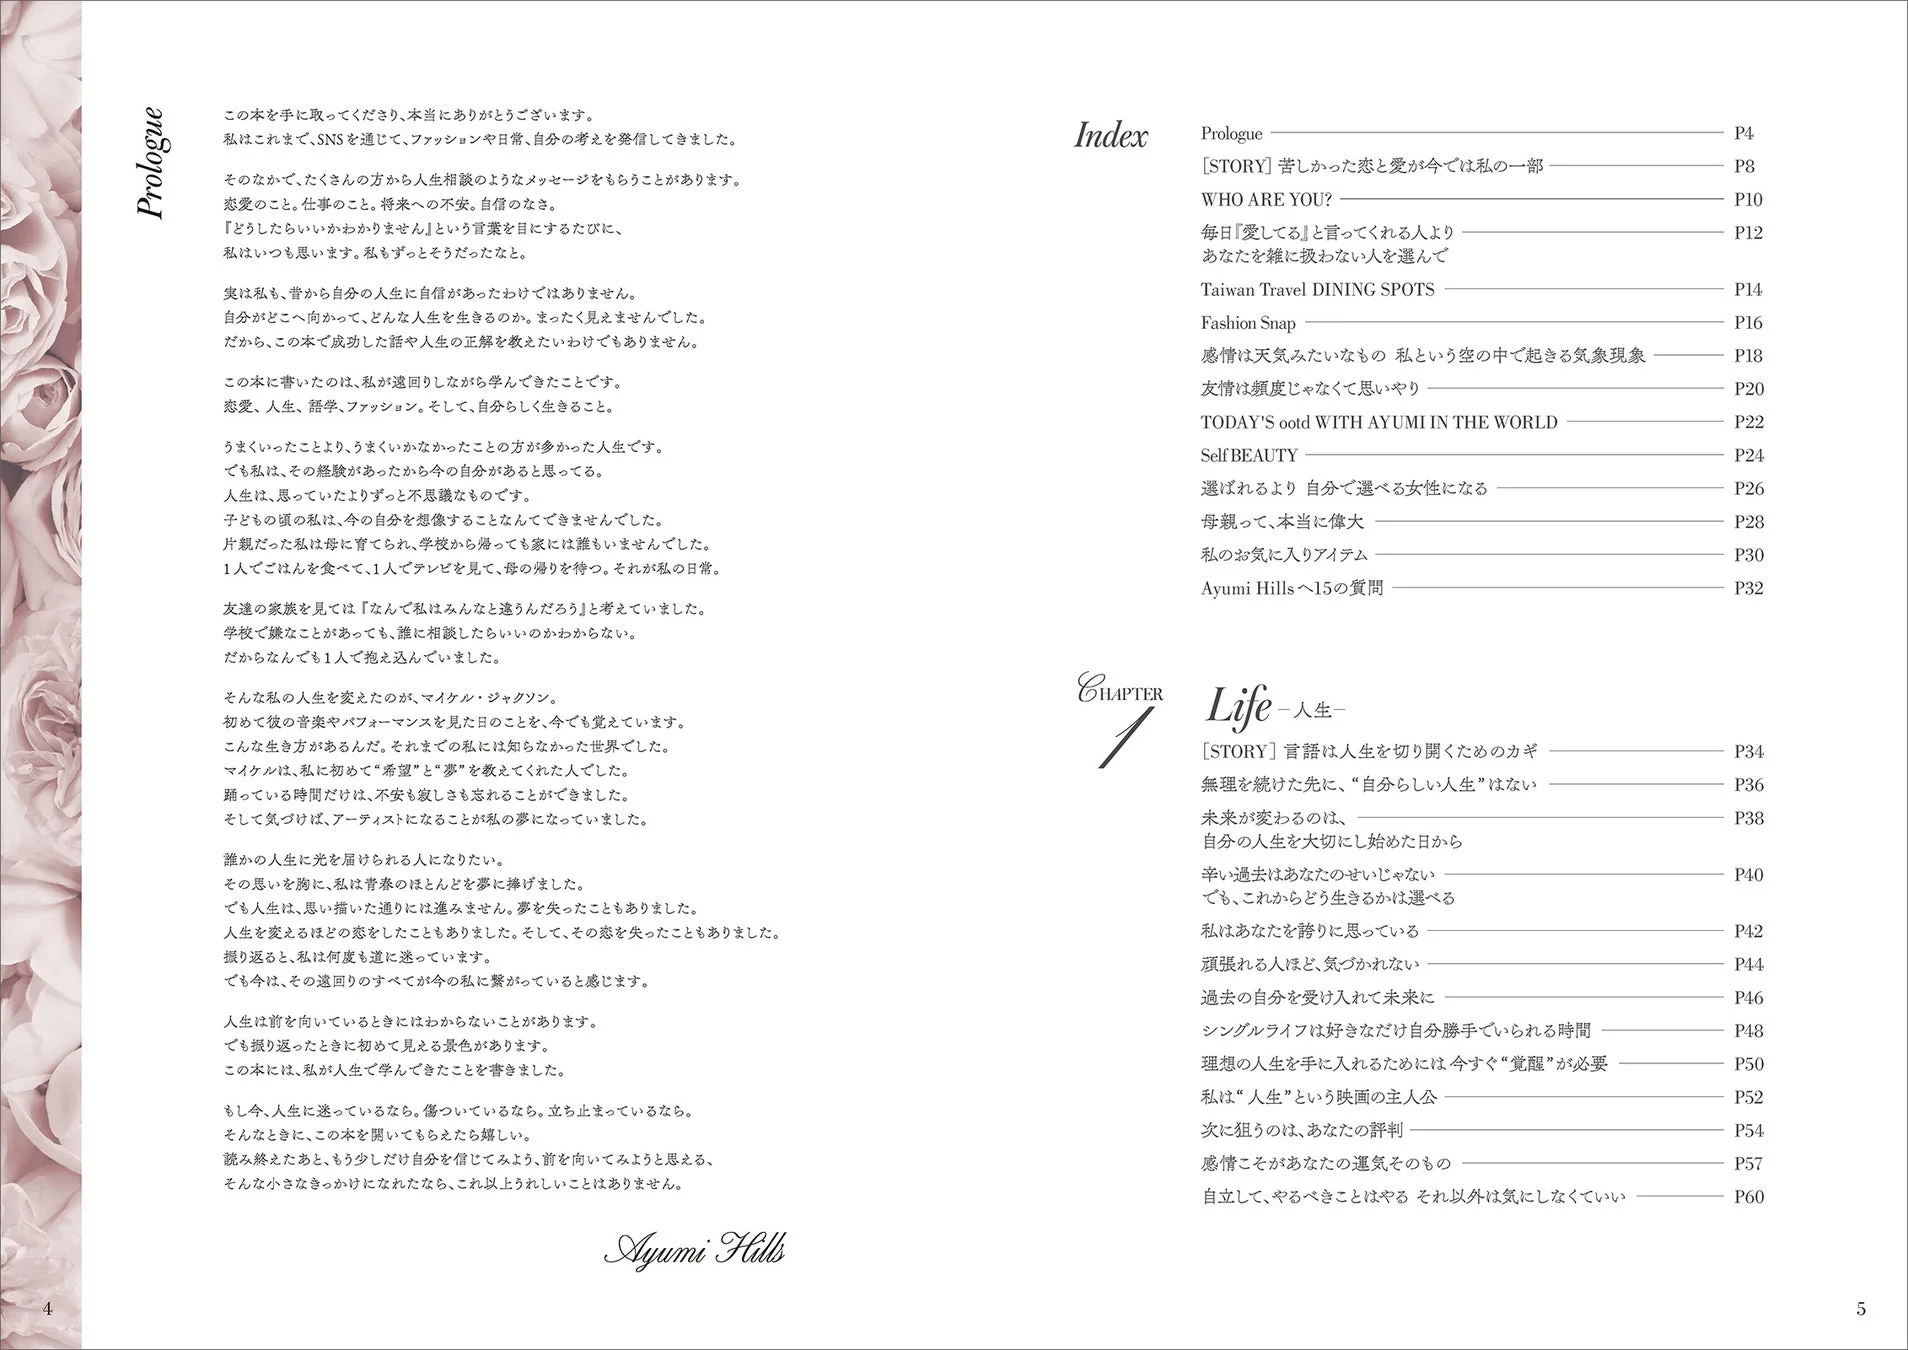 Prologue
この本を手に取ってくださり、本当にありがとうございます。
私はこれまで、SNSを通じて、ファッションや日常、自分の考えを発信してきました。
そのなかで、たくさんの方から人生相談のようなメッセージをもらうことがあります。
恋愛のこと。仕事のこと。将来への不安。自信のなさ。
『どうしたらいいかわかりません』という言葉を目にするたびに、
私はいつも思います。私もずっとそうだったなと。
実は私も、昔から自分の人生に自信があったわけではありません。
自分がどこへ向かって、どんな人生を生きるのか。まったく見えませんでした。
だから、この本で成功した話や人生の正解を教えたいわけでもありません。
この本に書いたのは、私が遠回りしながら学んできたことです。
恋愛、人生、語学、ファッション。そして、自分らしく生きること。
うまくいったことより、うまくいかなかったことの方が多かった人生です。
でも私は、その経験があったから今の自分があると思ってる。
人生は、思っていたよりずっと不思議なものです。
子どもの頃の私は、今の自分を想像することなんてできませんでした。
片親だった私は母に育てられ、学校から帰っても家には誰もいませんでした。
1人でごはんを食べて、1人でテレビを見て、母の帰りを待つ。それが私の日常。
友達の家族を見ては『なんで私はみんなと違うんだろう』と考えていました。
学校で嫌なことがあっても、誰に相談したらいいのかわからない。
だからなんでも1人で抱え込んでいました。
そんな私の人生を変えたのが、マイケル・ジャクソン。
初めて彼の音楽やパフォーマンスを見た日のことを、今でも覚えています。
こんな生き方があるんだ。それまでの私には知らなかった世界でした。
マイケルは、私に初めて“希望”と“夢”を教えてくれた人でした。
踊っている時間だけは、不安も寂しさも忘れることができました。
そして気づけば、アーティストになることが私の夢になっていました。
誰かの人生に光を届けられる人になりたい。
その思いを胸に、私は青春のほとんどを夢に捧げました。
でも人生は、思い描いた通りには進みません。夢を失ったこともありました。
人生を変えるほどの恋をしたこともありました。そして、その恋を失ったこともありました。
振り返ると、私は何度も道に迷っています。
でも今は、その遠回りのすべてが今の私に繋がっていると感じます。
人生は前を向いているときにはわからないことがあります。
でも振り返ったときに初めて見える景色があります。
この本には、私が人生で学んできたことを書きました。
もし今、人生に迷っているなら。傷ついているなら。立ち止まっているなら。
そんなときに、この本を開いてもらえたら嬉しい。
読み終えたあと、もう少しだけ自分を信じてみよう、前を向いてみようと思える、
そんな小さなきっかけになれたなら、これ以上うれしいことはありません。
Ayumi Hills
4
Index
Prologue P4
[STORY] 苦しかった恋と愛が今では私の一部 P8
WHO ARE YOU? P10
毎日『愛してる』と言ってくれる人より P12
あなたを雑に扱わない人を選んで
Taiwan Travel DINING SPOTS P14
Fashion Snap P16
感情は天気みたいなもの 私という空の中で起きる気象現象 P18
友情は頻度じゃなくて思いやり P20
TODAY'S ootd WITH AYUMI IN THE WORLD P22
Self BEAUTY P24
選ばれるより 自分で選べる女性になる P26
母親って、本当に偉大 P28
私のお気に入りアイテム P30
Ayumi Hillsへ15の質問 P32
CHAPTER
1
Life －人生－
[STORY] 言語は人生を切り開くためのカギ P34
無理を続けた先に、“自分らしい人生”はない P36
未来が変わるのは、 P38
自分の人生を大切にし始めた日から
辛い過去はあなたのせいじゃない P40
でも、これからどう生きるかは選べる
私はあなたを誇りに思っている P42
頑張れる人ほど、気づかれない P44
過去の自分を受け入れて未来に P46
シングルライフは好きなだけ自分勝手でいられる時間 P48
理想の人生を手に入れるためには今すぐ“覚醒”が必要 P50
私は“人生”という映画の主人公 P52
次に狙うのは、あなたの評判 P54
感情こそがあなたの運気そのもの P57
自立して、やるべきことはやる それ以外は気にしなくていい P60
5